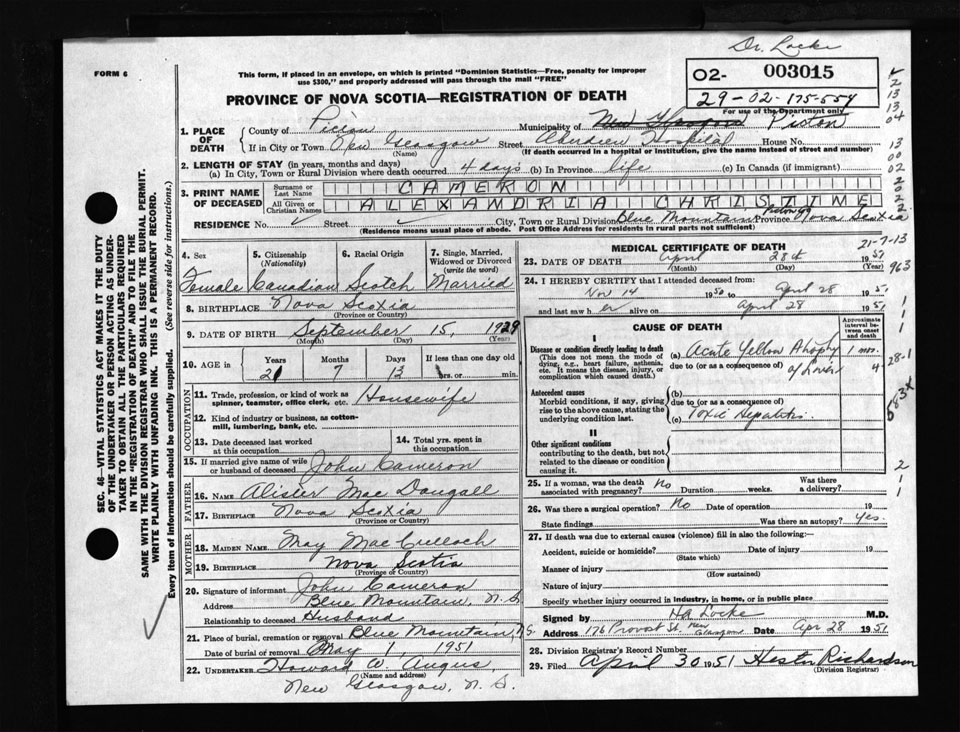 Dr. Locke
FORM 6
This form, if placed in an envelope, on which is printed "Dominion Statistics—Free, penalty for improper
use $300," and properly addressed will pass through the mail "FREE"
O2- 003015
29-02-175-554
For use of the Department only
PROVINCE OF NOVA SCOTIA—REGISTRATION OF DEATH
1. PLACE OF DEATH
County of Pictou Municipality of New Glasgow Picton
If in City or Town New Glasgow Street Hospital House No.
(Name) (If death occurred in a hospital or institution, give the name instead of street and number)
2. LENGTH OF STAY (in years, months and days)
(a) In City, Town or Rural Division where death occurred 4 days (b) In Province life (c) In Canada (if immigrant)
3. PRINT NAME OF DECEASED
Surname or Last Name CAMERON
All Given or Christian Names ALEXANDRIA CHRISTINE
RESIDENCE No. Street City, Town or Rural Division Blue Mountain Province Nova Scotia
(Residence means usual place of abode. Post Office Address for residents in rural parts not sufficient)
4. Sex 5. Citizenship (Nationality) 6. Racial Origin 7. Single, Married, Widowed or Divorced (write the word)
Female Canadian Scotch Married
8. BIRTHPLACE Nova Scotia
(Province or Country)
9. DATE OF BIRTH September 15, 1929
(Month) (Day) (Year)
10. AGE in Years Months Days If less than one day old
21 7 13 hrs. or min.
OCCUPATION
11. Trade, profession, or kind of work as spinner, teamster, office clerk, etc. Housewife
12. Kind of industry or business, as cotton-mill, lumbering, bank, etc.
13. Date deceased last worked at this occupation
14. Total yrs. spent in this occupation
15. If married give name of wife or husband of deceased John Cameron
FATHER
16. NAME Alister MacDougall
17. BIRTHPLACE Nova Scotia
(Province or Country)
MOTHER
18. MAIDEN NAME May MacCulloch
19. BIRTHPLACE Nova Scotia
(Province or Country)
20. Signature of informant John Cameron
Address Blue Mountain, N.S.
Relationship to deceased Husband
21. Place of burial, cremation or removal Blue Mountain, N.S.
Date of burial or removal May 1, 1951
22. UNDERTAKER Howard W. Angus,
(Name and address)
New Glasgow, N.S.
MEDICAL CERTIFICATE OF DEATH
23. DATE OF DEATH April 28th 1951
(Month) (Day) (Year)
24. I HEREBY CERTIFY that I attended deceased from:
Nov 14 1950 to April 28 1951
and last saw her alive on April 28 1951
CAUSE OF DEATH
Approximate interval between onset and death
I
Disease or condition directly leading to death
(This does not mean the mode of dying, e.g., heart failure, asthenia, etc. It means the disease, injury, or complication which caused death.)
(a) Acute Yellow Atrophy of Liver 1 mo.
due to (or as a consequence of)
Antecedent causes
Morbid conditions, if any, giving rise to the above cause, stating the underlying condition last.
(b)
due to (or as a consequence of)
(c) Toxic Hepatitis.
II
Other significant conditions
contributing to the death, but not related to the disease or condition causing it.
25. If a woman, was the death associated with pregnancy? No Duration weeks. Was there a delivery?
26. Was there a surgical operation? No Date of operation 19
State findings Was there an autopsy? Yes.
27. If death was due to external causes (violence) fill in also the following:
Accident, suicide or homicide? Date of injury 19
(State which)
Manner of injury
(How sustained)
Nature of injury
Specify whether injury occurred in industry, in home, or in public place
Signed by H.A. Locke M.D.
Address 176 Provost St. New Glasgow Date Apr 28 1951
28. Division Registrar's Record Number
29. Filed April 30 1951 Hester Richardson
(Division Registrar)
21-7-13
963
28-1
583X
SEC. 46—VITAL STATISTICS ACT MAKES IT THE DUTY
OF THE UNDERTAKER OR PERSON ACTING AS UNDER-
TAKER TO OBTAIN ALL THE PARTICULARS REQUIRED
IN THE "REGISTRATION OF DEATH" AND TO FILE THE
SAME WITH THE DIVISION REGISTRAR WHO SHALL ISSUE THE BURIAL PERMIT.
WRITE PLAINLY WITH UNFADING INK. THIS IS A PERMANENT RECORD.
Every item of information should be carefully supplied. (See reverse side for instructions.)